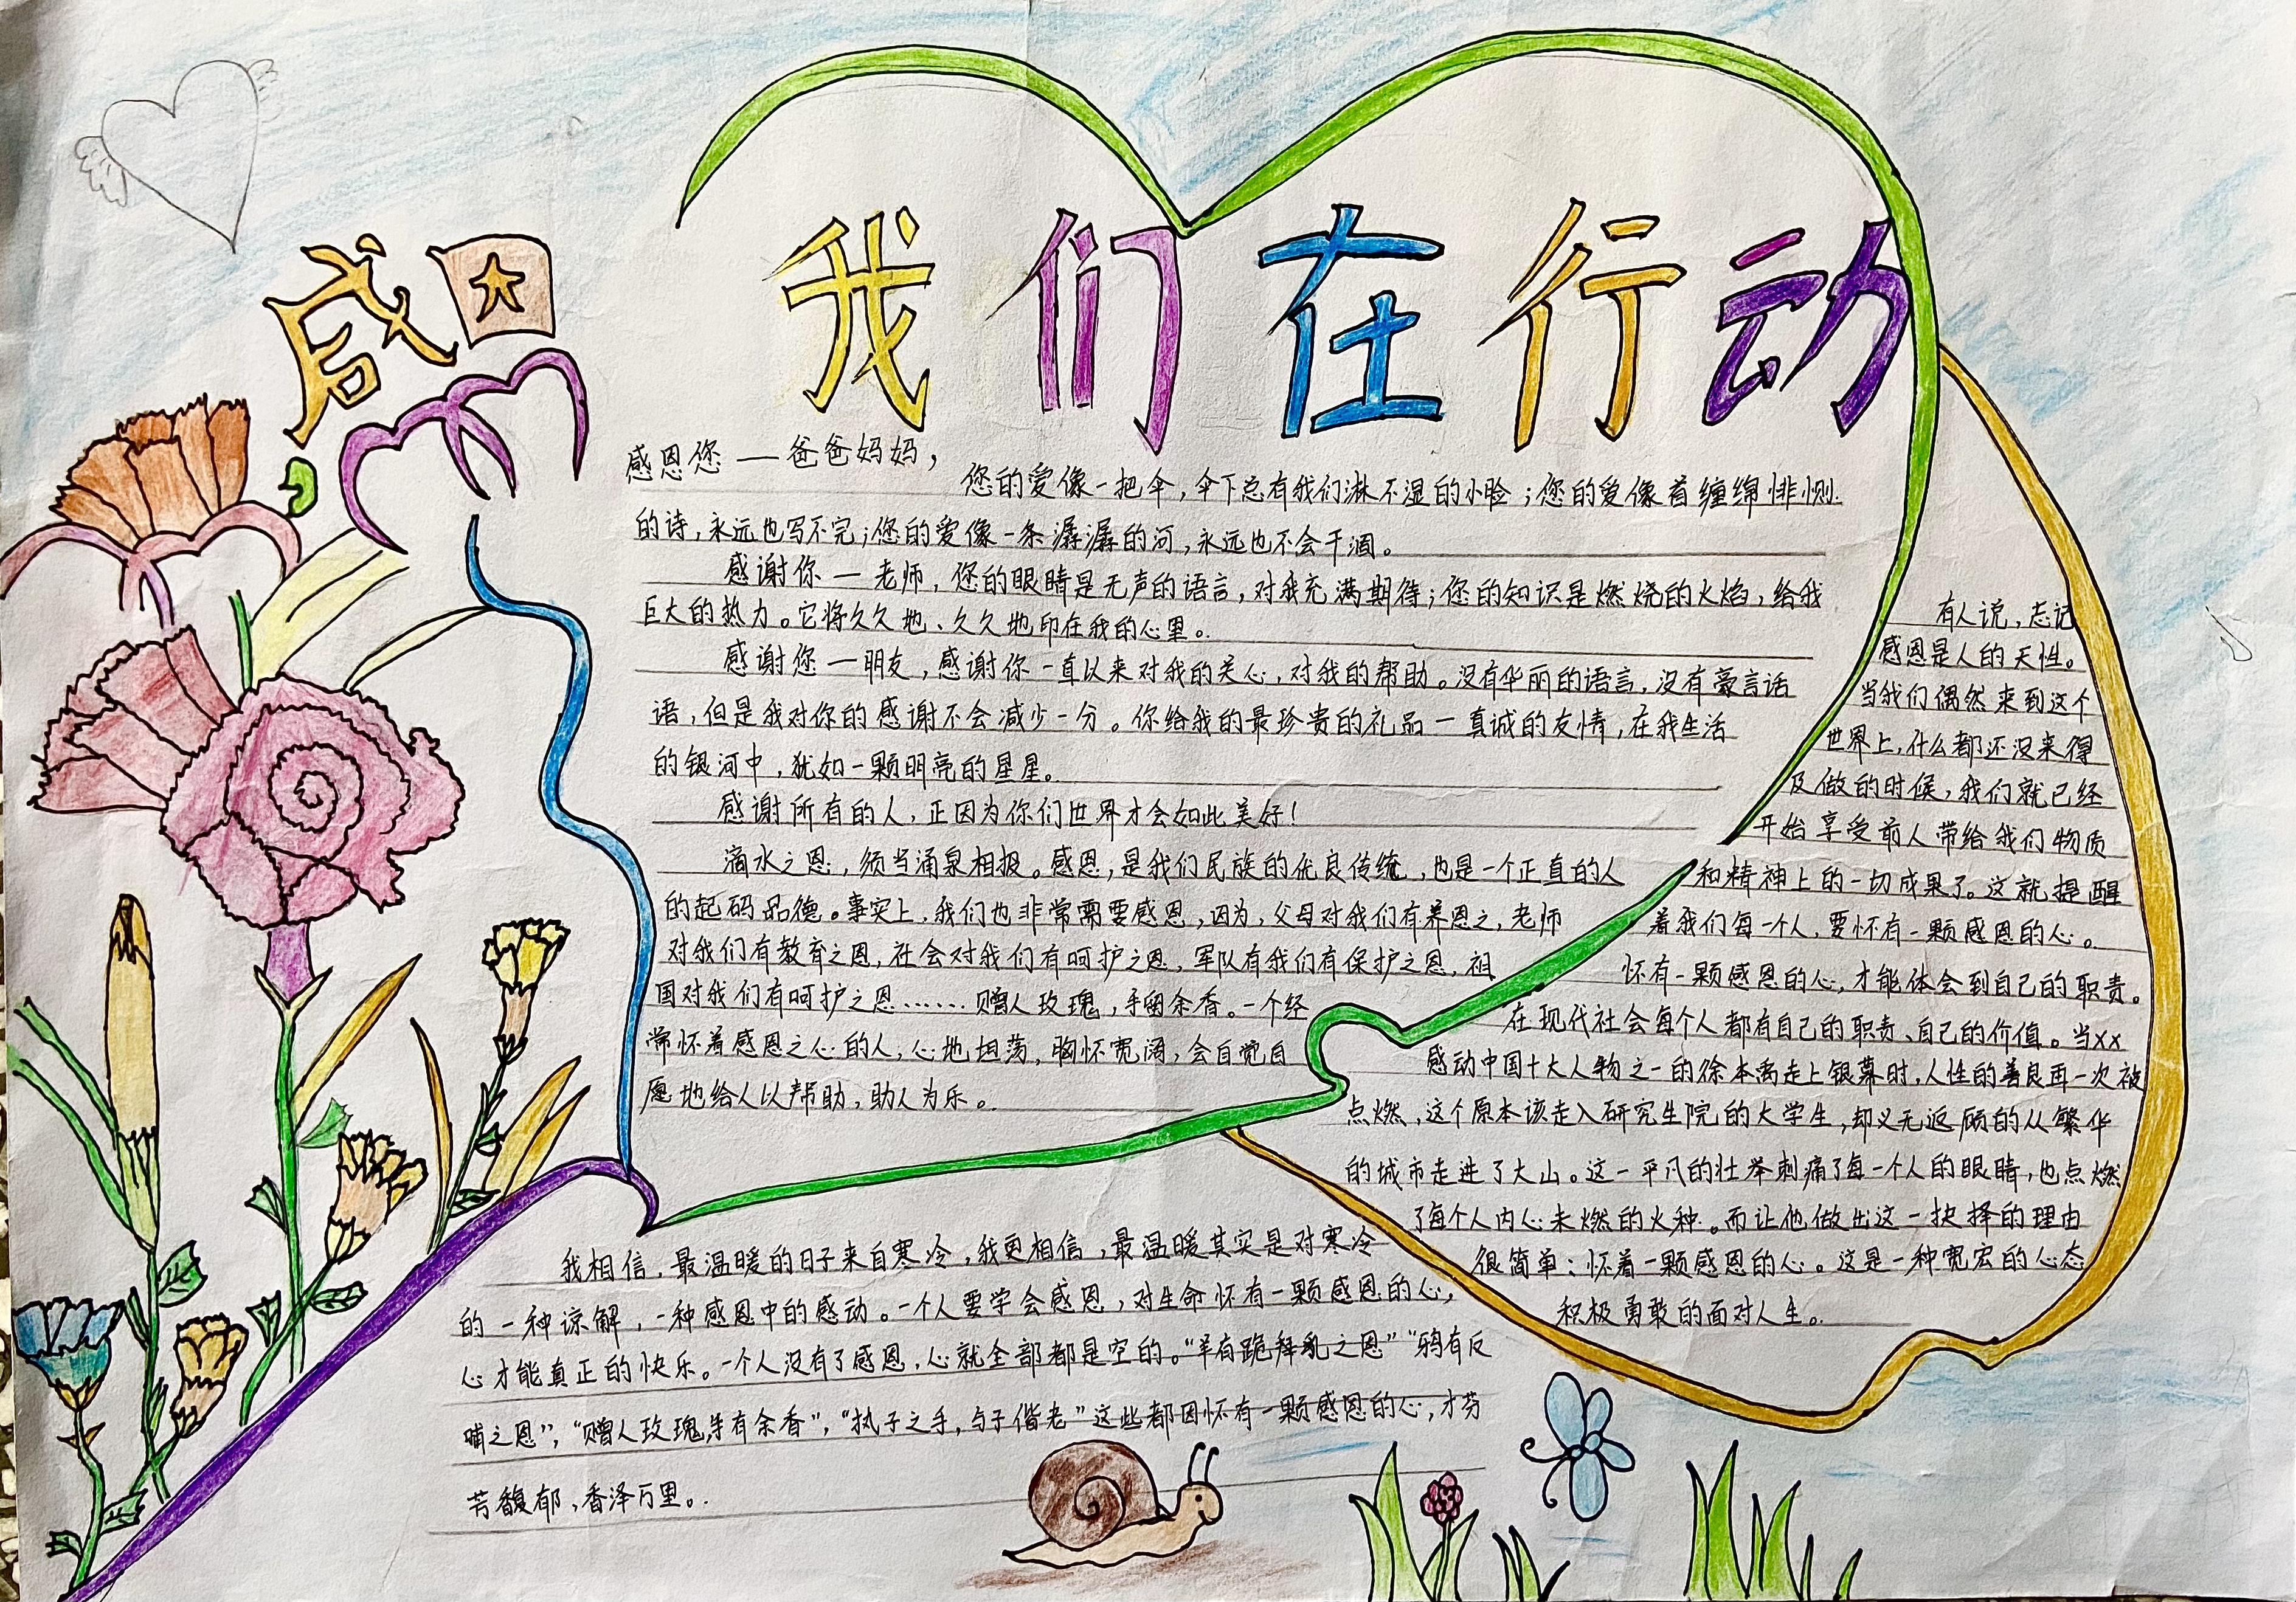 感恩
我们在行动
感恩您—爸爸妈妈，
您的爱像一把伞，伞下总有我们淋不湿的小脸；您的爱像首缠绵悱恻
的诗，永远也写不完；您的爱像一条潺潺的河，永远也不会干涸。
感谢你—老师，您的眼睛是无声的语言，对我充满期待；您的知识是燃烧的火焰，给我
巨大的热力。它将久久地、久久地印在我的心里。
感谢您—朋友，感谢你一直以来对我的关心，对我的帮助。没有华丽的语言，没有豪言话
语，但是我对你的感谢不会减少一分。你给我的最珍贵的礼品—真诚的友情，在我生活
的银河中，犹如一颗明亮的星星。
感谢所有的人，正因为你们世界才会如此美好！
滴水之恩，须当涌泉相报。感恩，是我们民族的优良传统，也是一个正直的人
的起码品德。事实上，我们也非常需要感恩，因为，父母对我们有养恩之，老师
对我们有教育之恩，社会对我们有呵护之恩，军队有我们有保护之恩，祖
国对我们有呵护之恩……赠人玫瑰，手留余香。一个经
常怀着感恩之心的人，心地坦荡，胸怀宽阔，会自觉自
愿地给人以帮助，助人为乐。
有人说，忘记
感恩是人的天性。
当我们偶然来到这个
世界上，什么都还没来得
及做的时候，我们就已经
开始享受前人带给我们物质
和精神上的一切成果了。这就提醒
着我们每一个人，要怀有一颗感恩的心。
怀有一颗感恩的心，才能体会到自己的职责。
在现代社会每个人都有自己的职责、自己的价值。当XX
感动中国十大人物之一的徐本禹走上银幕时，人性的善良再一次被
点燃，这个原本该走入研究生院的大学生，却义无返顾的从繁华
的城市走进了大山。这一平凡的壮举刺痛了每一个人的眼睛，也点燃
了每个人内心未燃的火种。而让他做出这一抉择的理由
很简单：怀着一颗感恩的心。这是一种宽宏的心态
积极勇敢的面对人生。
我相信，最温暖的日子来自寒冷，我更相信，最温暖其实是对寒冷
的一种谅解，一种感恩中的感动。一个人要学会感恩，对生命怀有一颗感恩的心，
心才能真正的快乐。一个人没有了感恩，心就全部都是空的。“羊有跪拜乳之恩”“鸦有反
哺之恩”，“赠人玫瑰，手有余香”，“执子之手，与子偕老”这些都因怀有一颗感恩的心，才芬
芳馥郁，香泽万里。